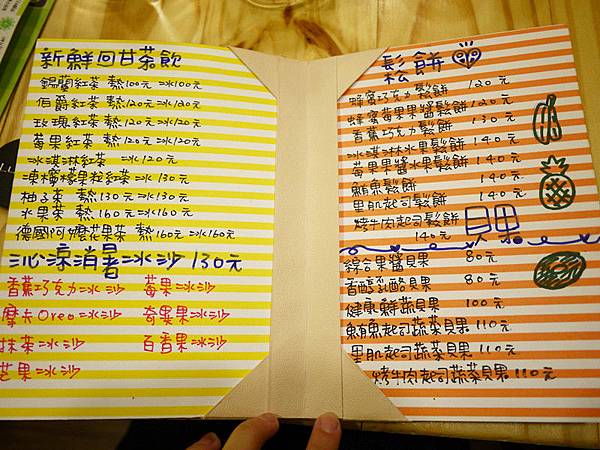 新鮮回甘茶飲
錫蘭紅茶 熱100元 冰100元
伯爵紅茶 熱120元 冰120元
玫瑰紅茶 熱120元 冰120元
莓果紅茶 熱120元 冰120元
冰淇淋紅茶 冰120元
凍檸檬果粒紅茶 冰130元
柚子茶 熱130元 冰130元
水果茶 熱160元 冰160元
德國阿嬤花果茶 熱160元 冰160元
沁涼消暑冰沙 130元
香蕉巧克力冰沙 莓果冰沙
摩卡Oreo冰沙 奇異果冰沙
抹茶冰沙 百香果冰沙
芒果冰沙
鬆餅
蜂蜜巧克力鬆餅 120元
蜂蜜莓果果醬鬆餅 120元
香蕉巧克力鬆餅 130元
冰淇淋水果鬆餅 140元
莓果果醬水果鬆餅 140元
鮪魚鬆餅 140元
里肌起司鬆餅 140元
烤牛肉起司鬆餅
140元
貝果
綜合果醬貝果 80元
香醇乳酪貝果 80元
健康鮮蔬貝果 100元
鮪魚起司蔬菜貝果 110元
里肌起司蔬菜貝果 110元
烤牛肉起司蔬菜貝果 110元